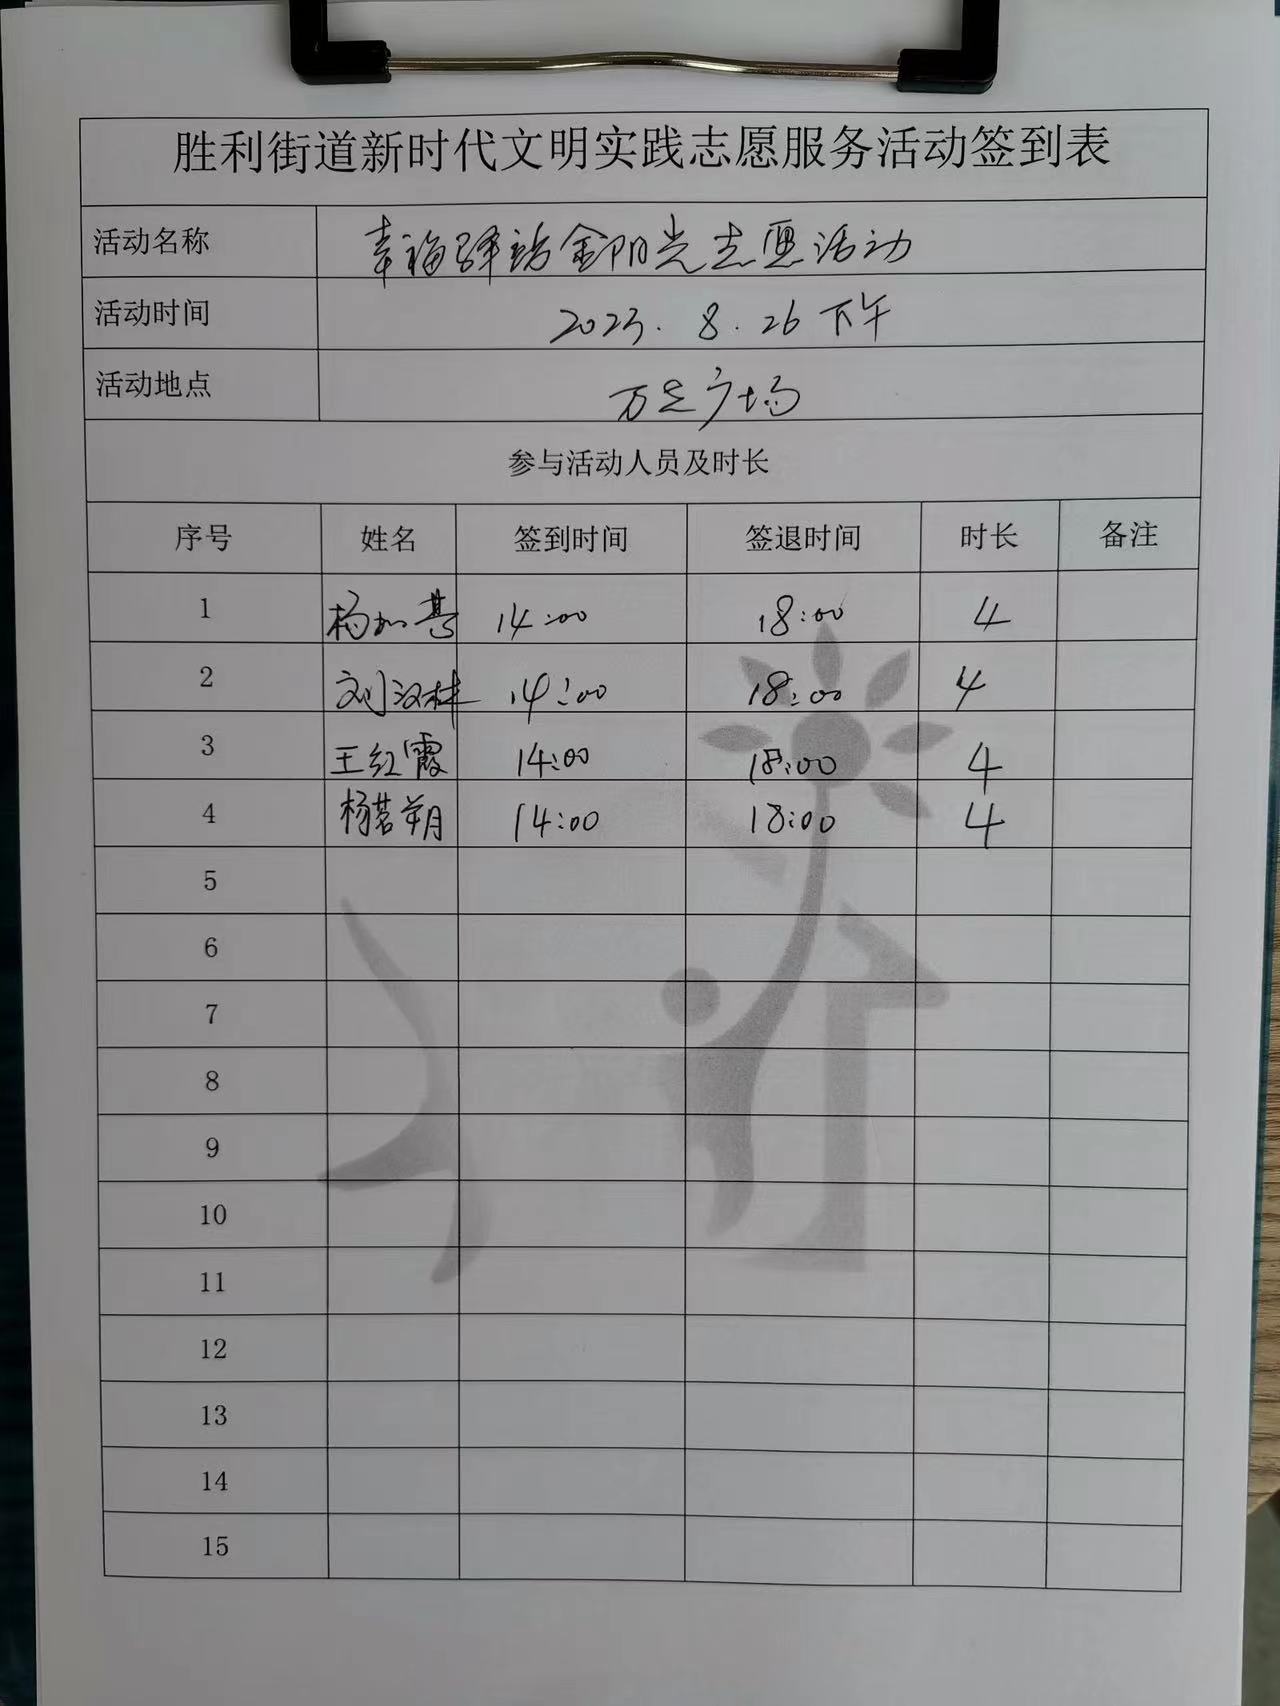 胜利街道新时代文明实践志愿服务活动签到表
活动名称 幸福驿站金阳光志愿活动
活动时间 2023.8.26下午
活动地点 万达广场
参与活动人员及时长
序号 姓名 签到时间 签退时间 时长 备注
1 14:00 18:00 4
2 刘汉林 14:00 18:00 4
3 王红霞 14:00 18:00 4
4 杨茗朔 14:00 18:00 4
5
6
7
8
9
10
11
12
13
14
15